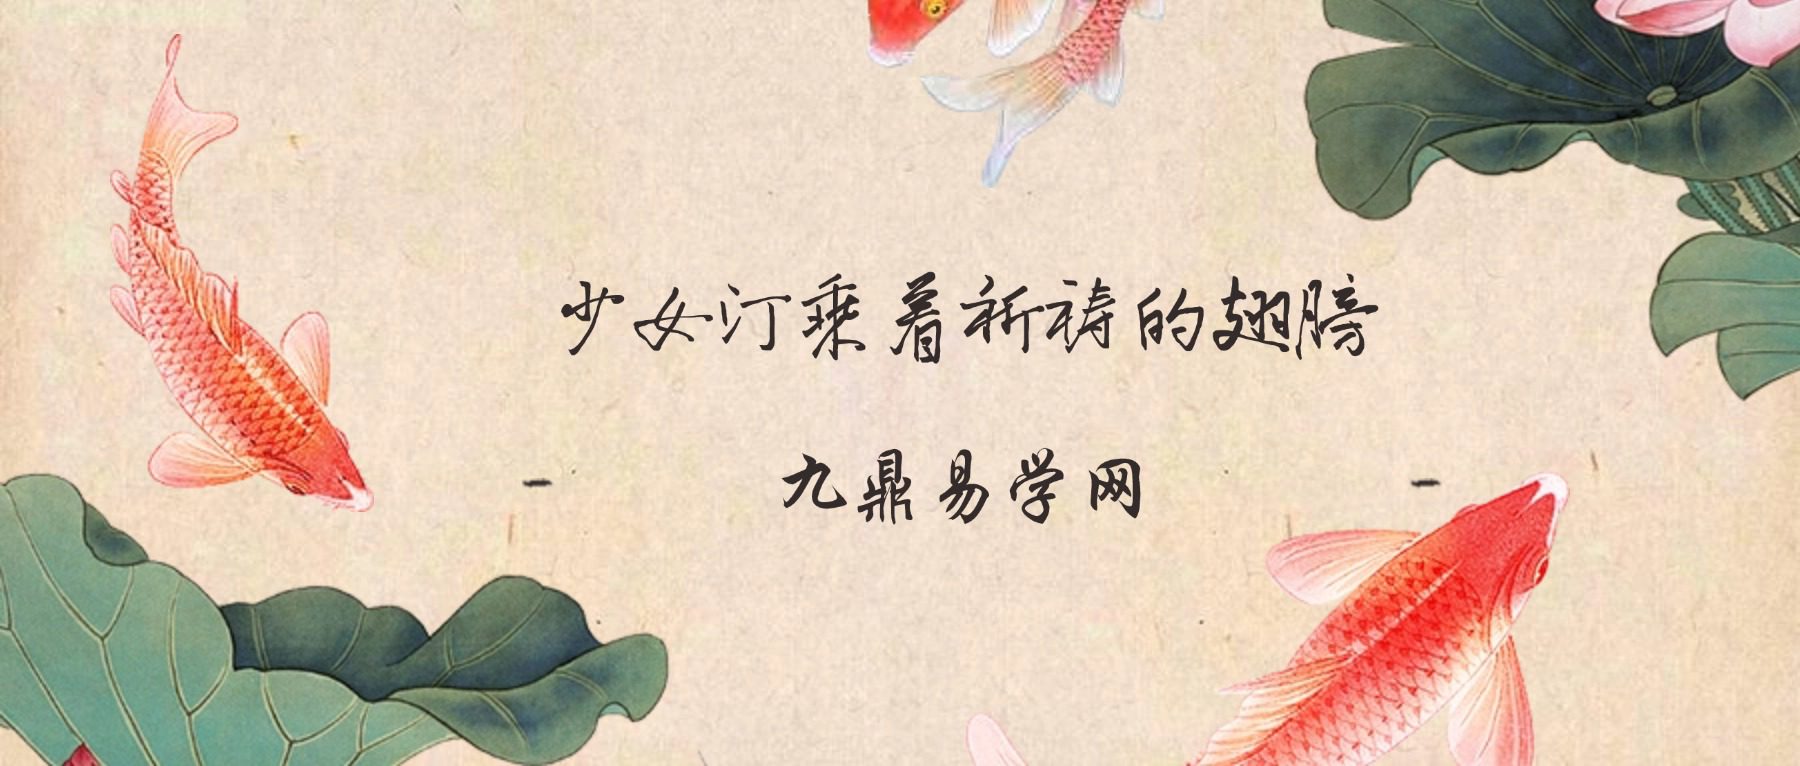 少女汀乘着祈祷的翅膀
九鼎易学网